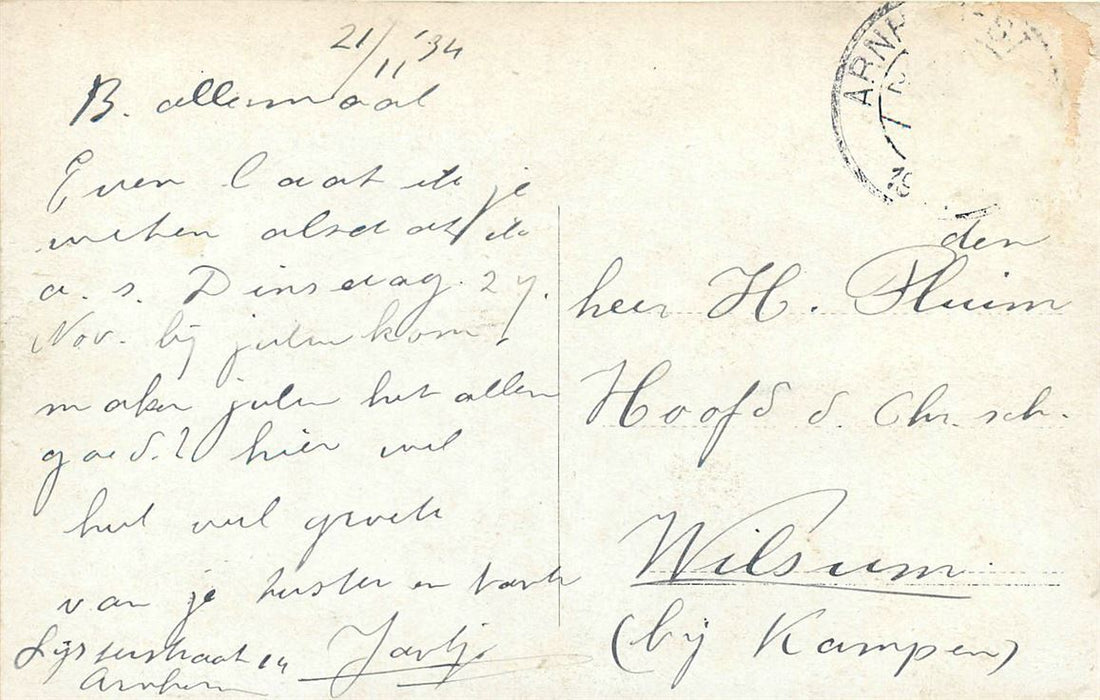 21/11 '34
B. allemaal
Even laat ik je
weten alsdat ik
a.s. Dinsdag 27
Nov. bij julie kom.
maken julie het allen
goed? hier wel
heel veel groete
van je zuster en tante
Jantje
Lijsterstraat
Arnhem
ARN
den
heer H. Pluim
Hoofd d. Chr. sch.
Wilsum
(bij Kampen)